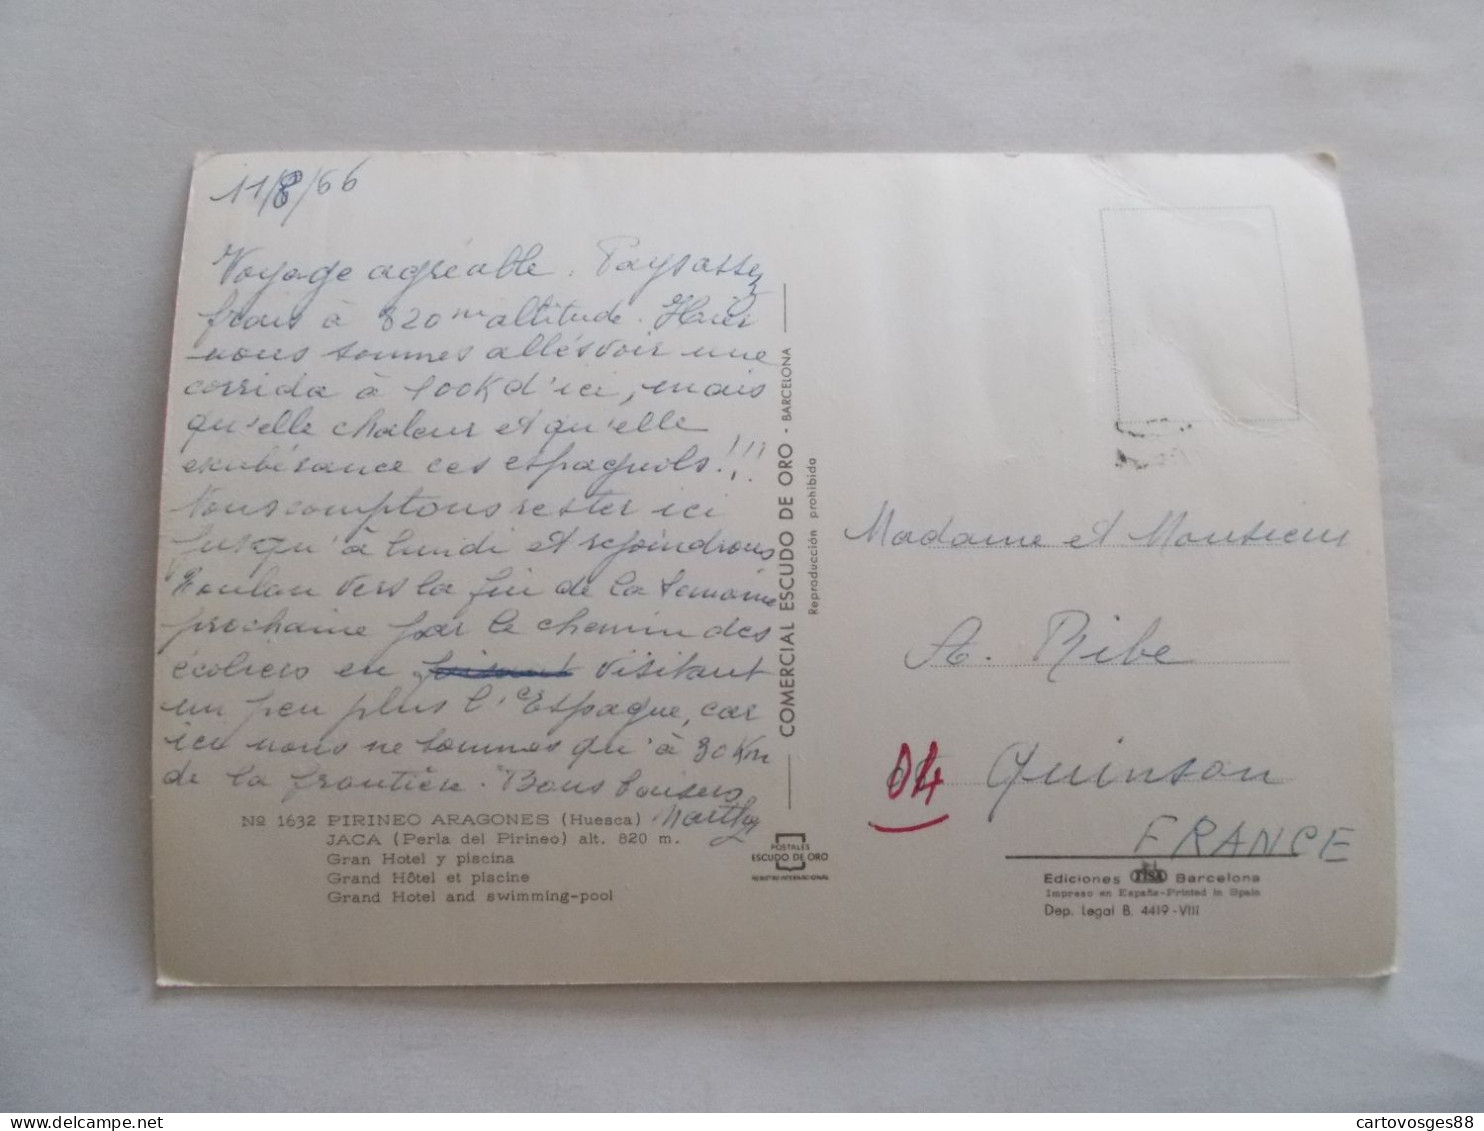 11/8/66
Voyage agréable. Pays assez
frais à 820m altitude. Hier
nous sommes allés voir une
corrida à 100K d'ici, mais
qu'elle chaleur et qu'elle
exubérance ces espagnols!!!
Nous comptons rester ici
jusqu'à lundi et rejoindrons
vers la fin de la semaine
prochaine par le chemin des
écoliers en visitant
un peu plus l'Espagne, car
ici nous ne sommes qu'à 30 Km
de la frontière. Bons baisers
Nº 1632 PIRINEO ARAGONES (Huesca)
JACA (Perla del Pirineo) alt. 820 m.
Gran Hotel y piscina
Grand Hôtel et piscine
Grand Hotel and swimming-pool
COMERCIAL ESCUDO DE ORO - BARCELONA
Reproducción prohibida
POSTALES
ESCUDO DE ORO
REGISTRO INTERNACIONAL
Madame et Monsieur
A. Ribe
04 Quinson
FRANCE
Ediciones FISA Barcelona
Impreso en España-Printed in Spain
Dep. Legal B. 4419-VIII
cartovosges88